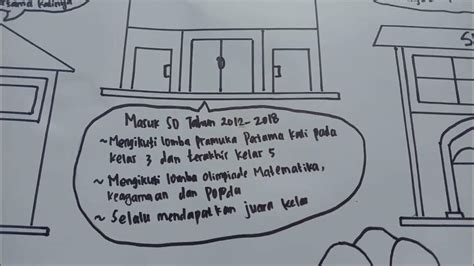 Pertama Kalinya
Masuk SD Tahun 2012-2018
~ Mengikuti lomba Pramuka Pertama kali pada
kelas 3 dan terakhir kelas 5
~ Mengikuti lomba olimpiade Matematika,
keagamaan dan POPda
~ Selalu mendapatkan juara kelas